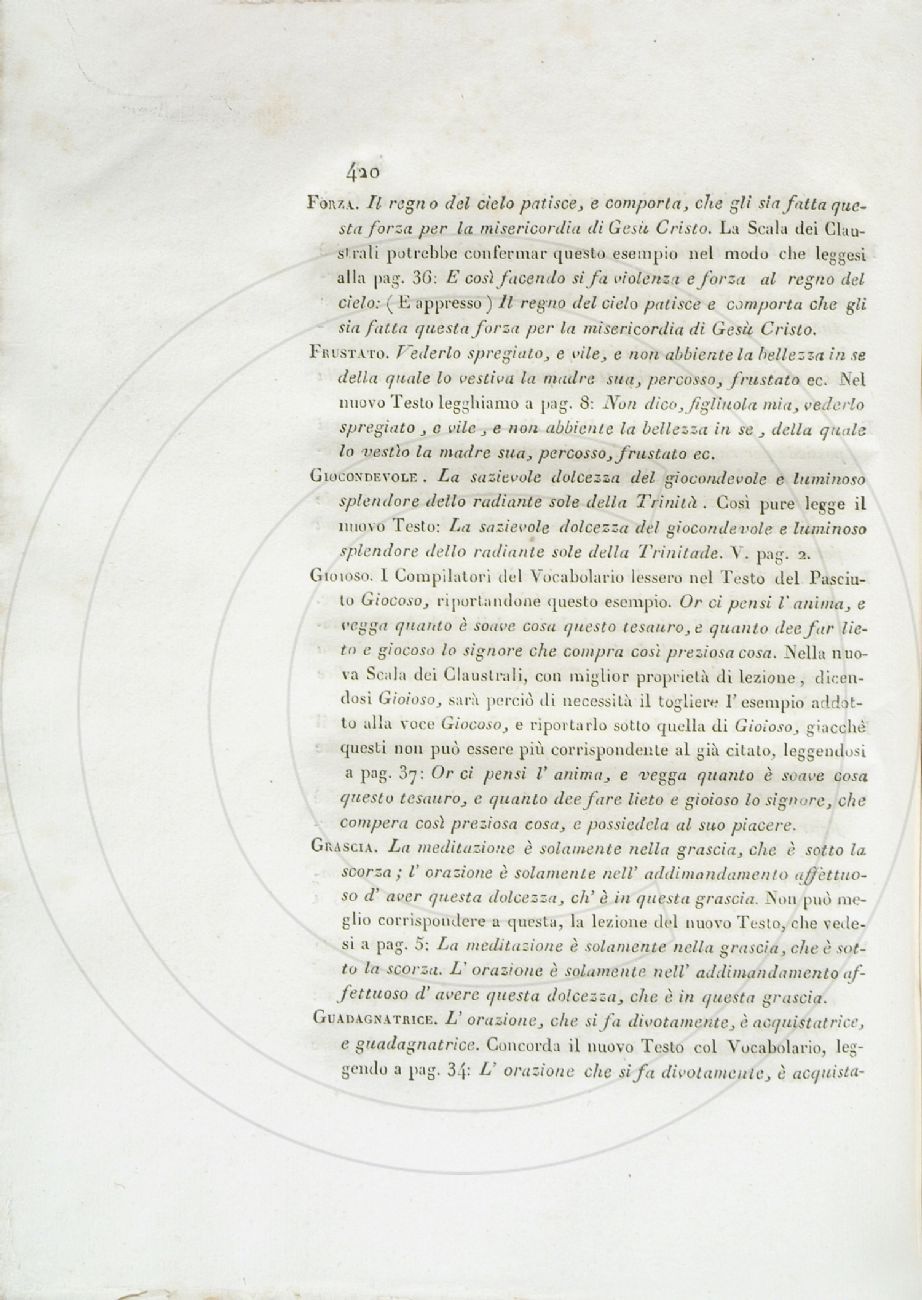 420
FORZA. Il regno del cielo patisce, e comporta, che gli sia fatta que-
sta forza per la misericordia di Gesù Cristo. La Scala dei Clau-
strali potrebbe confermar questo esempio nel modo che leggesi
alla pag. 36: E così facendo si fa violenza e forza al regno del
cielo: (E appresso) Il regno del cielo patisce e comporta che gli
sia fatta questa forza per la misericordia di Gesù Cristo.
FRUSTATO. Vederlo spregiato, e vile, e non abbiente la bellezza in se
della quale lo vestiva la madre sua, percosso, frustato ec. Nel
nuovo Testo legghiamo a pag. 8: Non dico, figliuola mia, vederlo
spregiato, e vile, e non abbiente la bellezza in se, della quale
lo vestìo la madre sua, percosso, frustato ec.
GIOCONDEVOLE. La sazievole dolcezza del giocondevole e luminoso
splendore dello radiante sole della Trinità. Così pure legge il
nuovo Testo: La sazievole dolcezza del giocondevole e luminoso
splendore dello radiante sole della Trinitade. V. pag. 2.
GIOIOSO. I Compilatori del Vocabolario lessero nel Testo del Pasciu-
to Giocoso, riportandone questo esempio. Or ci pensi l' anima, e
vegga quanto è soave cosa questo tesauro, e quanto dee far lie-
to e giocoso lo signore che compra così preziosa cosa. Nella nuo-
va Scala dei Claustrali, con miglior proprietà di lezione, dicen-
dosi Gioioso, sarà perciò di necessità il togliere l' esempio addot-
to alla voce Giocoso, e riportarlo sotto quella di Gioioso, giacchè
questi non può essere più corrispondente al già citato, leggendosi
a pag. 37: Or ci pensi l' anima, e vegga quanto è soave cosa
questo tesauro, e quanto dee fare lieto e gioioso lo signore, che
compera così preziosa cosa, e possiedela al suo piacere.
GRASCIA. La meditazione è solamente nella grascia, che è sotto la
scorza; l' orazione è solamente nell' addimandamento affettuo-
so d' aver questa dolcezza, ch' è in questa grascia. Non può me-
glio corrispondere a questa, la lezione del nuovo Testo, che vede-
si a pag. 5: La meditazione è solamente nella grascia, che è sot-
to la scorza. L' orazione è solamente nell' addimandamento af-
fettuoso d' avere questa dolcezza, che è in questa grascia.
GUADAGNATRICE. L' orazione, che si fa divotamente, è acquistatrice,
e guadagnatrice. Concorda il nuovo Testo col Vocabolario, leg-
gendo a pag. 34: L' orazione che si fa divotamente, è acquista-